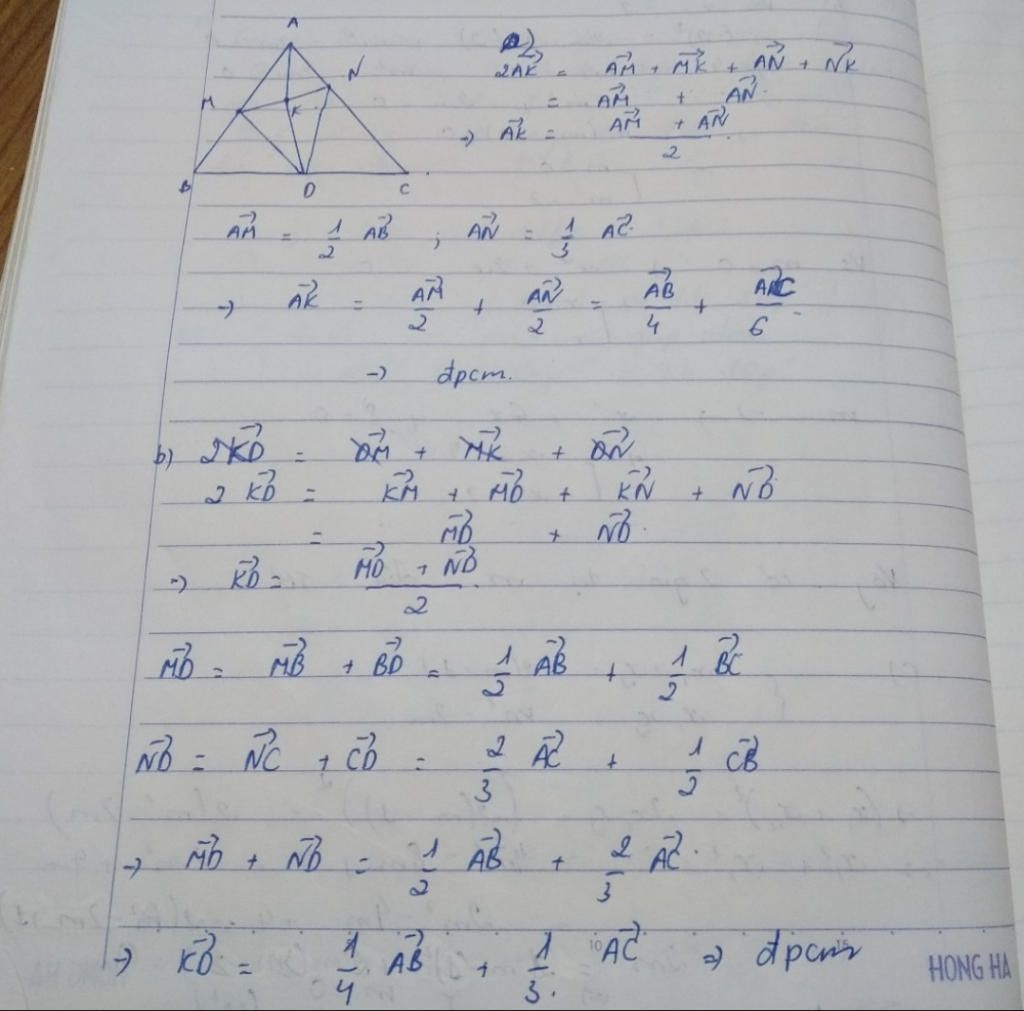 A
N
M
K
B
D
C
a)
2AK⃗ = AM⃗ + MK⃗ + AN⃗ + NK⃗
= AM⃗ + AN⃗.
→ AK⃗ = (AM⃗ + AN⃗)/2.
AM⃗ = 1/2 AB⃗ ; AN⃗ = 1/3 AC⃗.
→ AK⃗ = AM⃗/2 + AN⃗/2 = AB⃗/4 + AC⃗/6.
→ đpcm.
b) 2KD⃗ = DM⃗ + MK⃗ + DN⃗
2 KD⃗ = KM⃗ + MD⃗ + KN⃗ + ND⃗
= MD⃗ + ND⃗.
→ KD⃗ = (MD⃗ + ND⃗)/2.
MD⃗ = MB⃗ + BD⃗ = 1/2 AB⃗ + 1/2 BC⃗
ND⃗ = NC⃗ + CD⃗ = 2/3 AC⃗ + 1/2 CB⃗
→ MD⃗ + ND⃗ = 1/2 AB⃗ + 2/3 AC⃗.
→ KD⃗ = 1/4 AB⃗ + 1/3. AC⃗ ⇒ đpcm
10
15
HONG HA